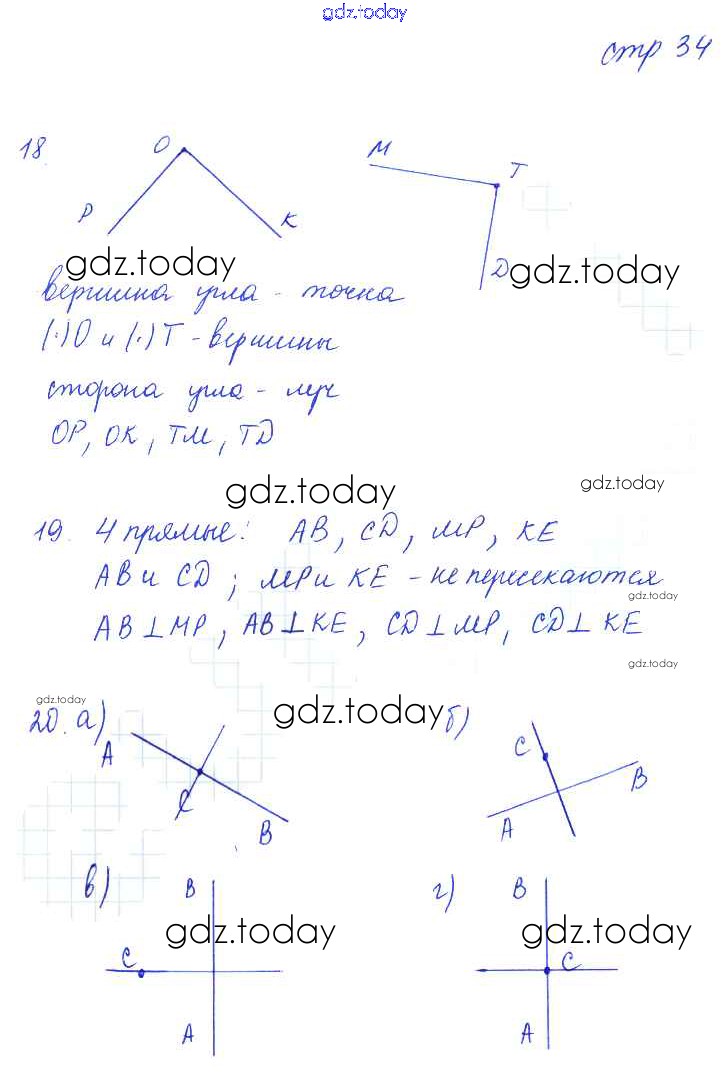 gdz.today
стр 34
18. O M T
P K D
gdz.today gdz.today
вершина угла - точка
(·)O и (·)T - вершины
сторона угла - луч
OP, OK, TM, TD
gdz.today gdz.today
19. 4 прямые: AB, CD, MP, KE
AB и CD; MP и KE - не пересекаются
gdz.today
AB⊥MP, AB⊥KE, CD⊥MP, CD⊥KE
gdz.today
gdz.today gdz.today
20. а) A C B
б) C A B
в) B C A
gdz.today
г) B C A
gdz.today